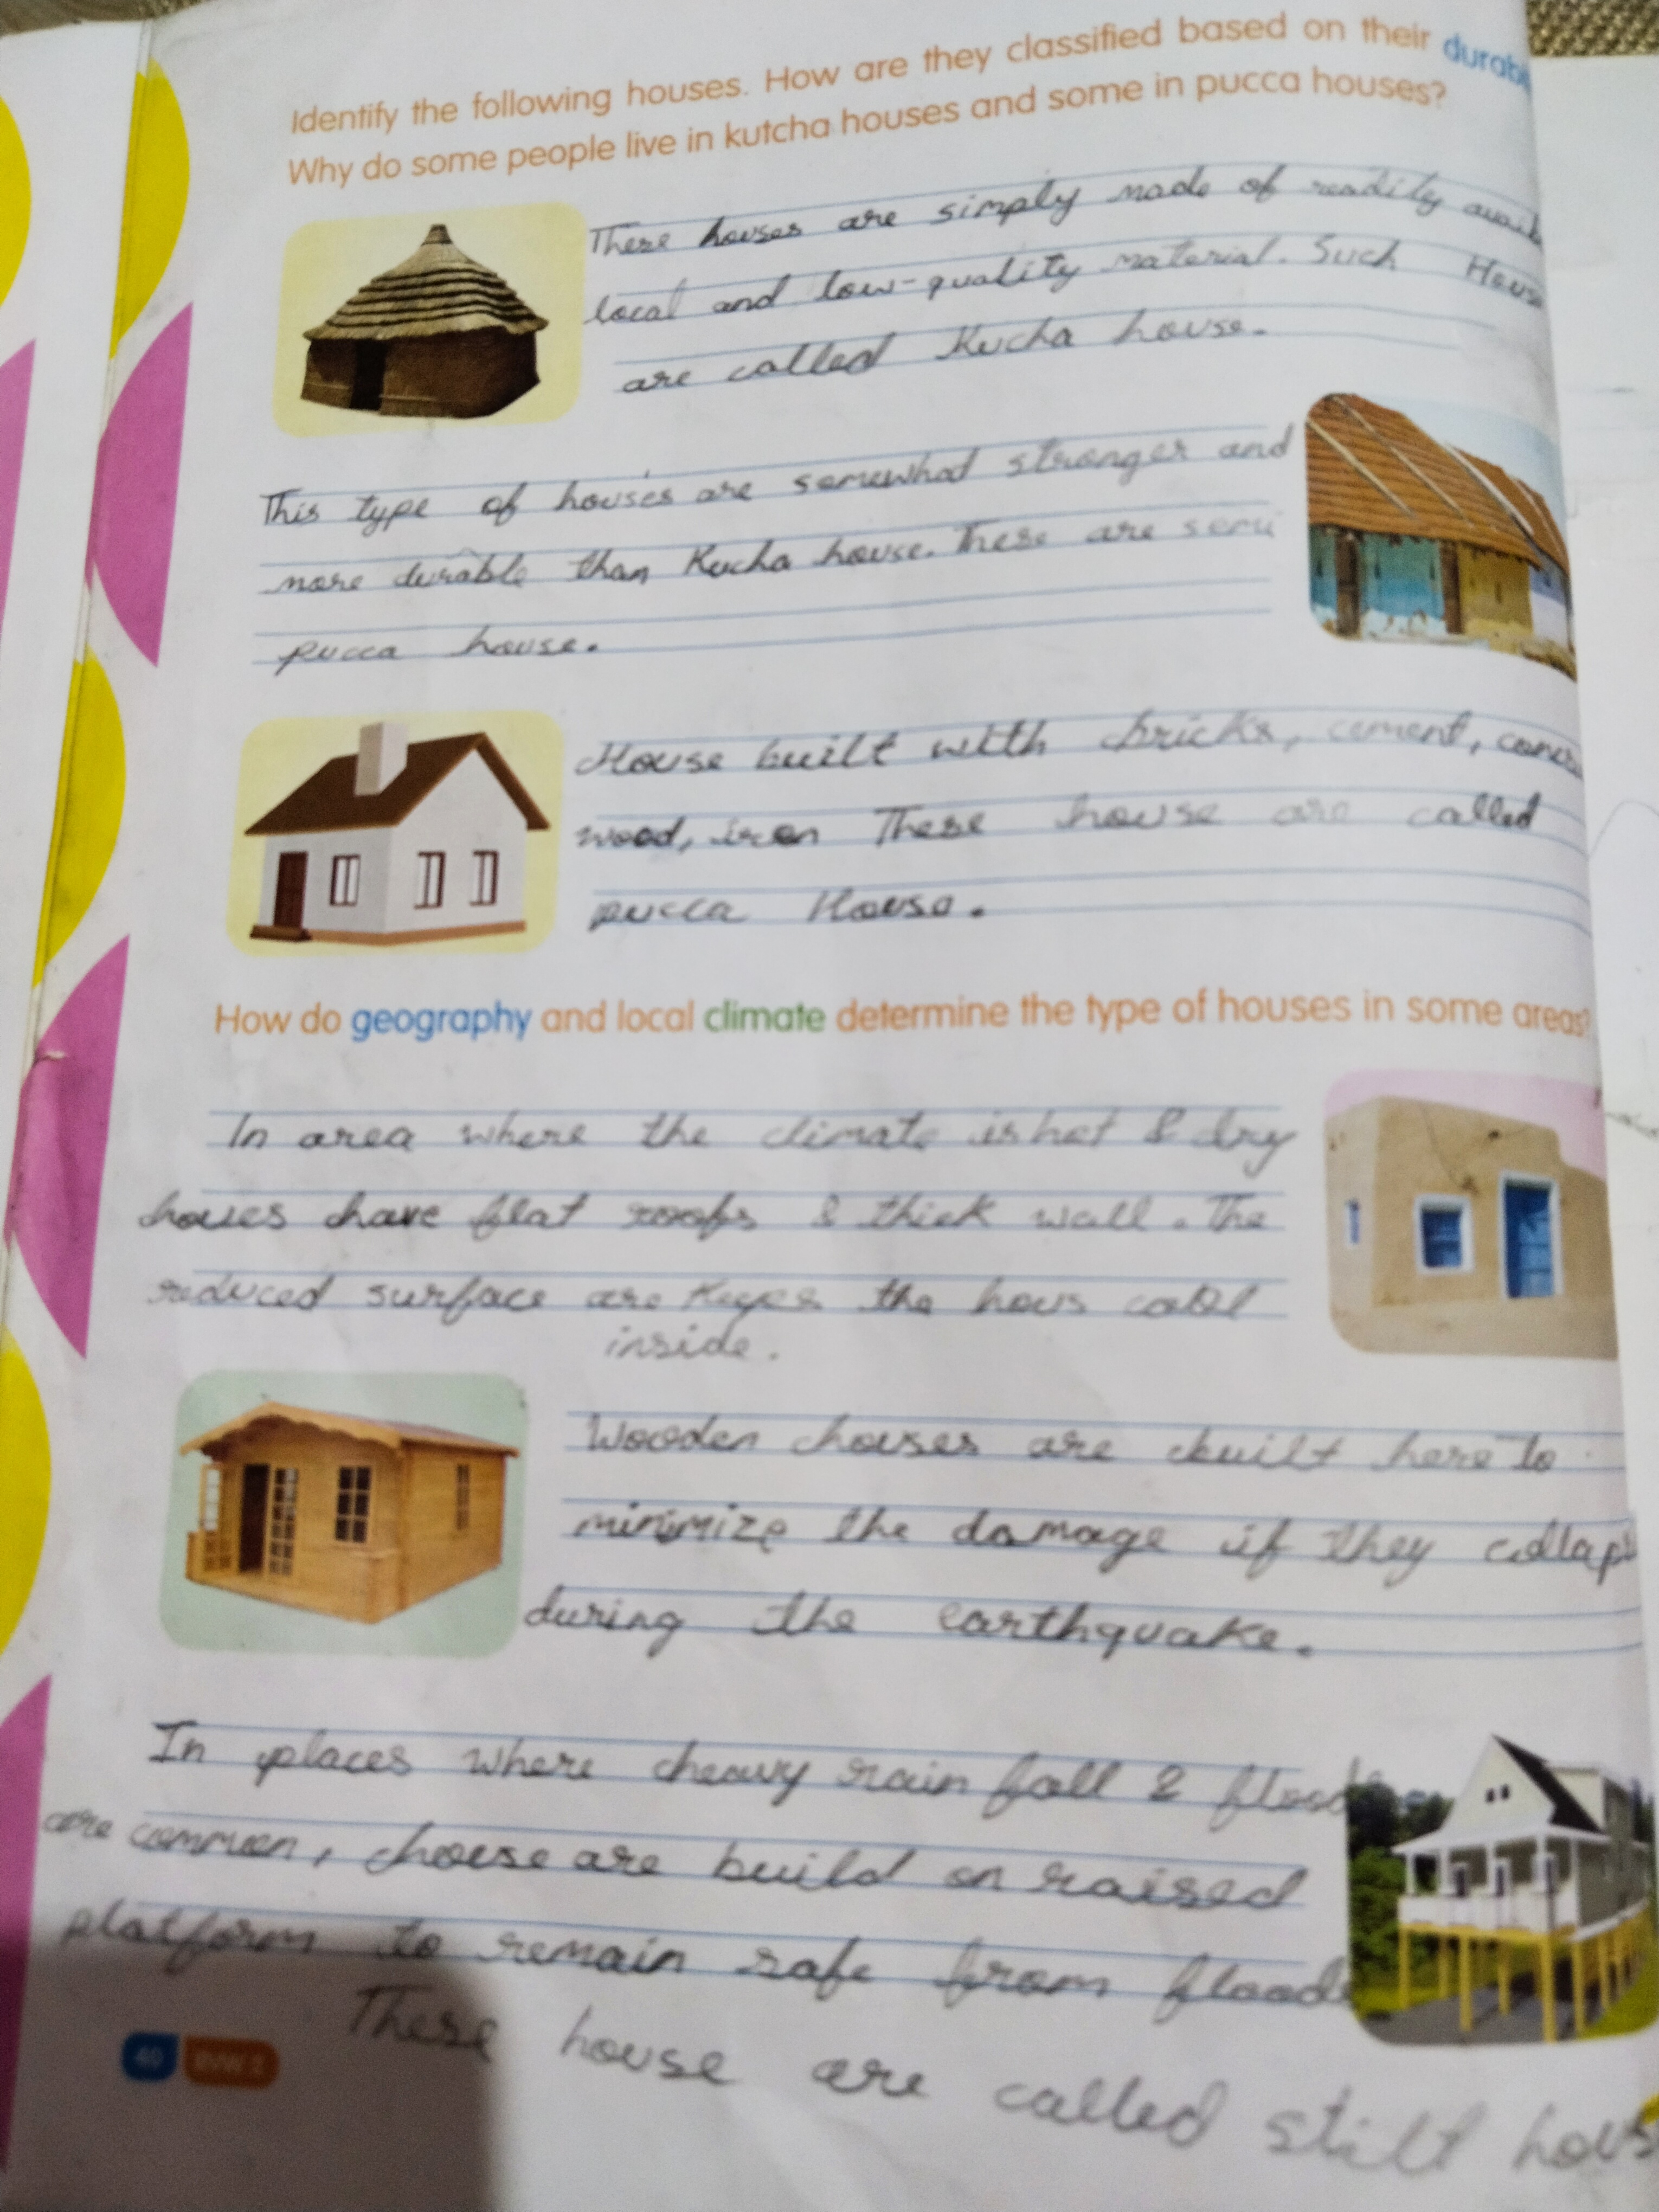 Identify the following houses. How are they classified based on their
Why do some people live in kutcha houses and some in pucca houses?
These houses are simply made of readily
local and low-quality material. Such
are called Kucha house.
This type of houses are somewhat stronger and
more durable than Kucha house. These are semi
pucca house.
House built with bricks, cement,
wood, iron These house are called
pucca House.
How do geography and local climate determine the type of houses in some areas?
In area where the climate is hot & dry
houes have flat roofs & thick wall. The
reduced surface are Keeps the hous
inside.
Wooden houses are built here to
minimize the damage if they
during the earthquake.
In places where heavy rain fall &
are common, house are build on raised
platform to remain safe from
40
These house are called stilt